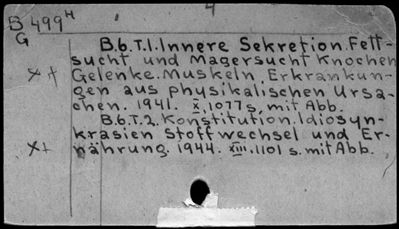 4
B 499 H
G
B.6.T.1. Innere Sekretion. Fett-
sucht und Magersucht Knochen
Gelenke. Muskeln. Erkrankun-
gen aus physikalischen Ursa-
chen. 1941. X, 1077 s. mit Abb.
B.6.T.2. Konstitution. Idiosyn-
krasien Stoffwechsel und Er-
nährung. 1944. XIII. 1101 s. mit Abb.